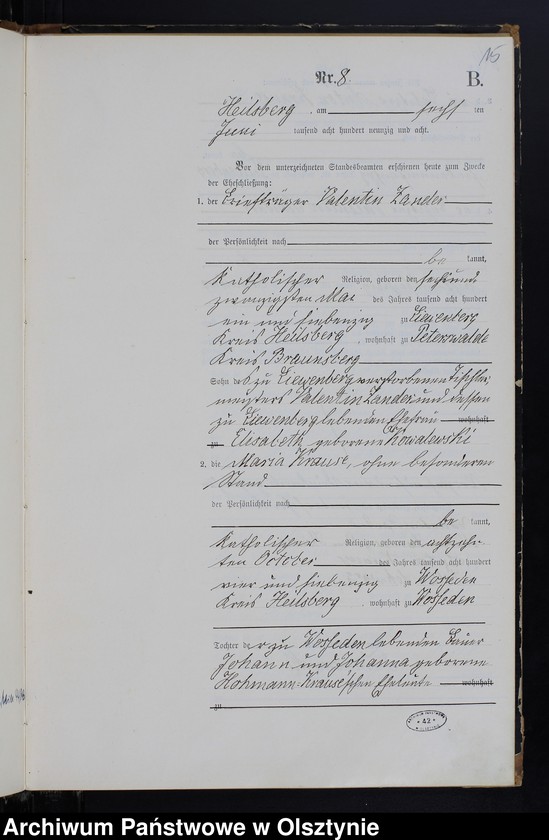 15
Nr. 8.
B.
Heilsberg, am sechs ten
Juni tausend acht hundert neunzig und acht.
Vor dem unterzeichneten Standesbeamten erschienen heute zum Zwecke
der Eheschließung:
1. der Briefträger Valentin Zander
der Persönlichkeit nach
be kannt,
katholischer Religion, geboren den sechsund
zwanzigsten Mai des Jahres tausend acht hundert
ein und siebenzig zu Liewenberg
Kreis Heilsberg, wohnhaft zu Peterswalde
Kreis Braunsberg
Sohn des zu Liewenberg verstorbenen Tischler
meisters Valentin Zander und dessen
zu Liewenberg lebenden Ehefrau wohnhaft
zu Elisabeth geborene Kowalewski
2. die Maria Krause, ohne besonderen
Stand
der Persönlichkeit nach
be kannt,
katholischer Religion, geboren den achtzehn
ten October des Jahres tausend acht hundert
vier und siebenzig zu Wosseden
Kreis Heilsberg, wohnhaft zu Wosseden
Tochter der zu Wosseden lebenden Bauer
Johann und Johanna geborene
Hohmann-Krause'schen Eheleute wohnhaft
zu
42
Archiwum Państwowe w Olsztynie